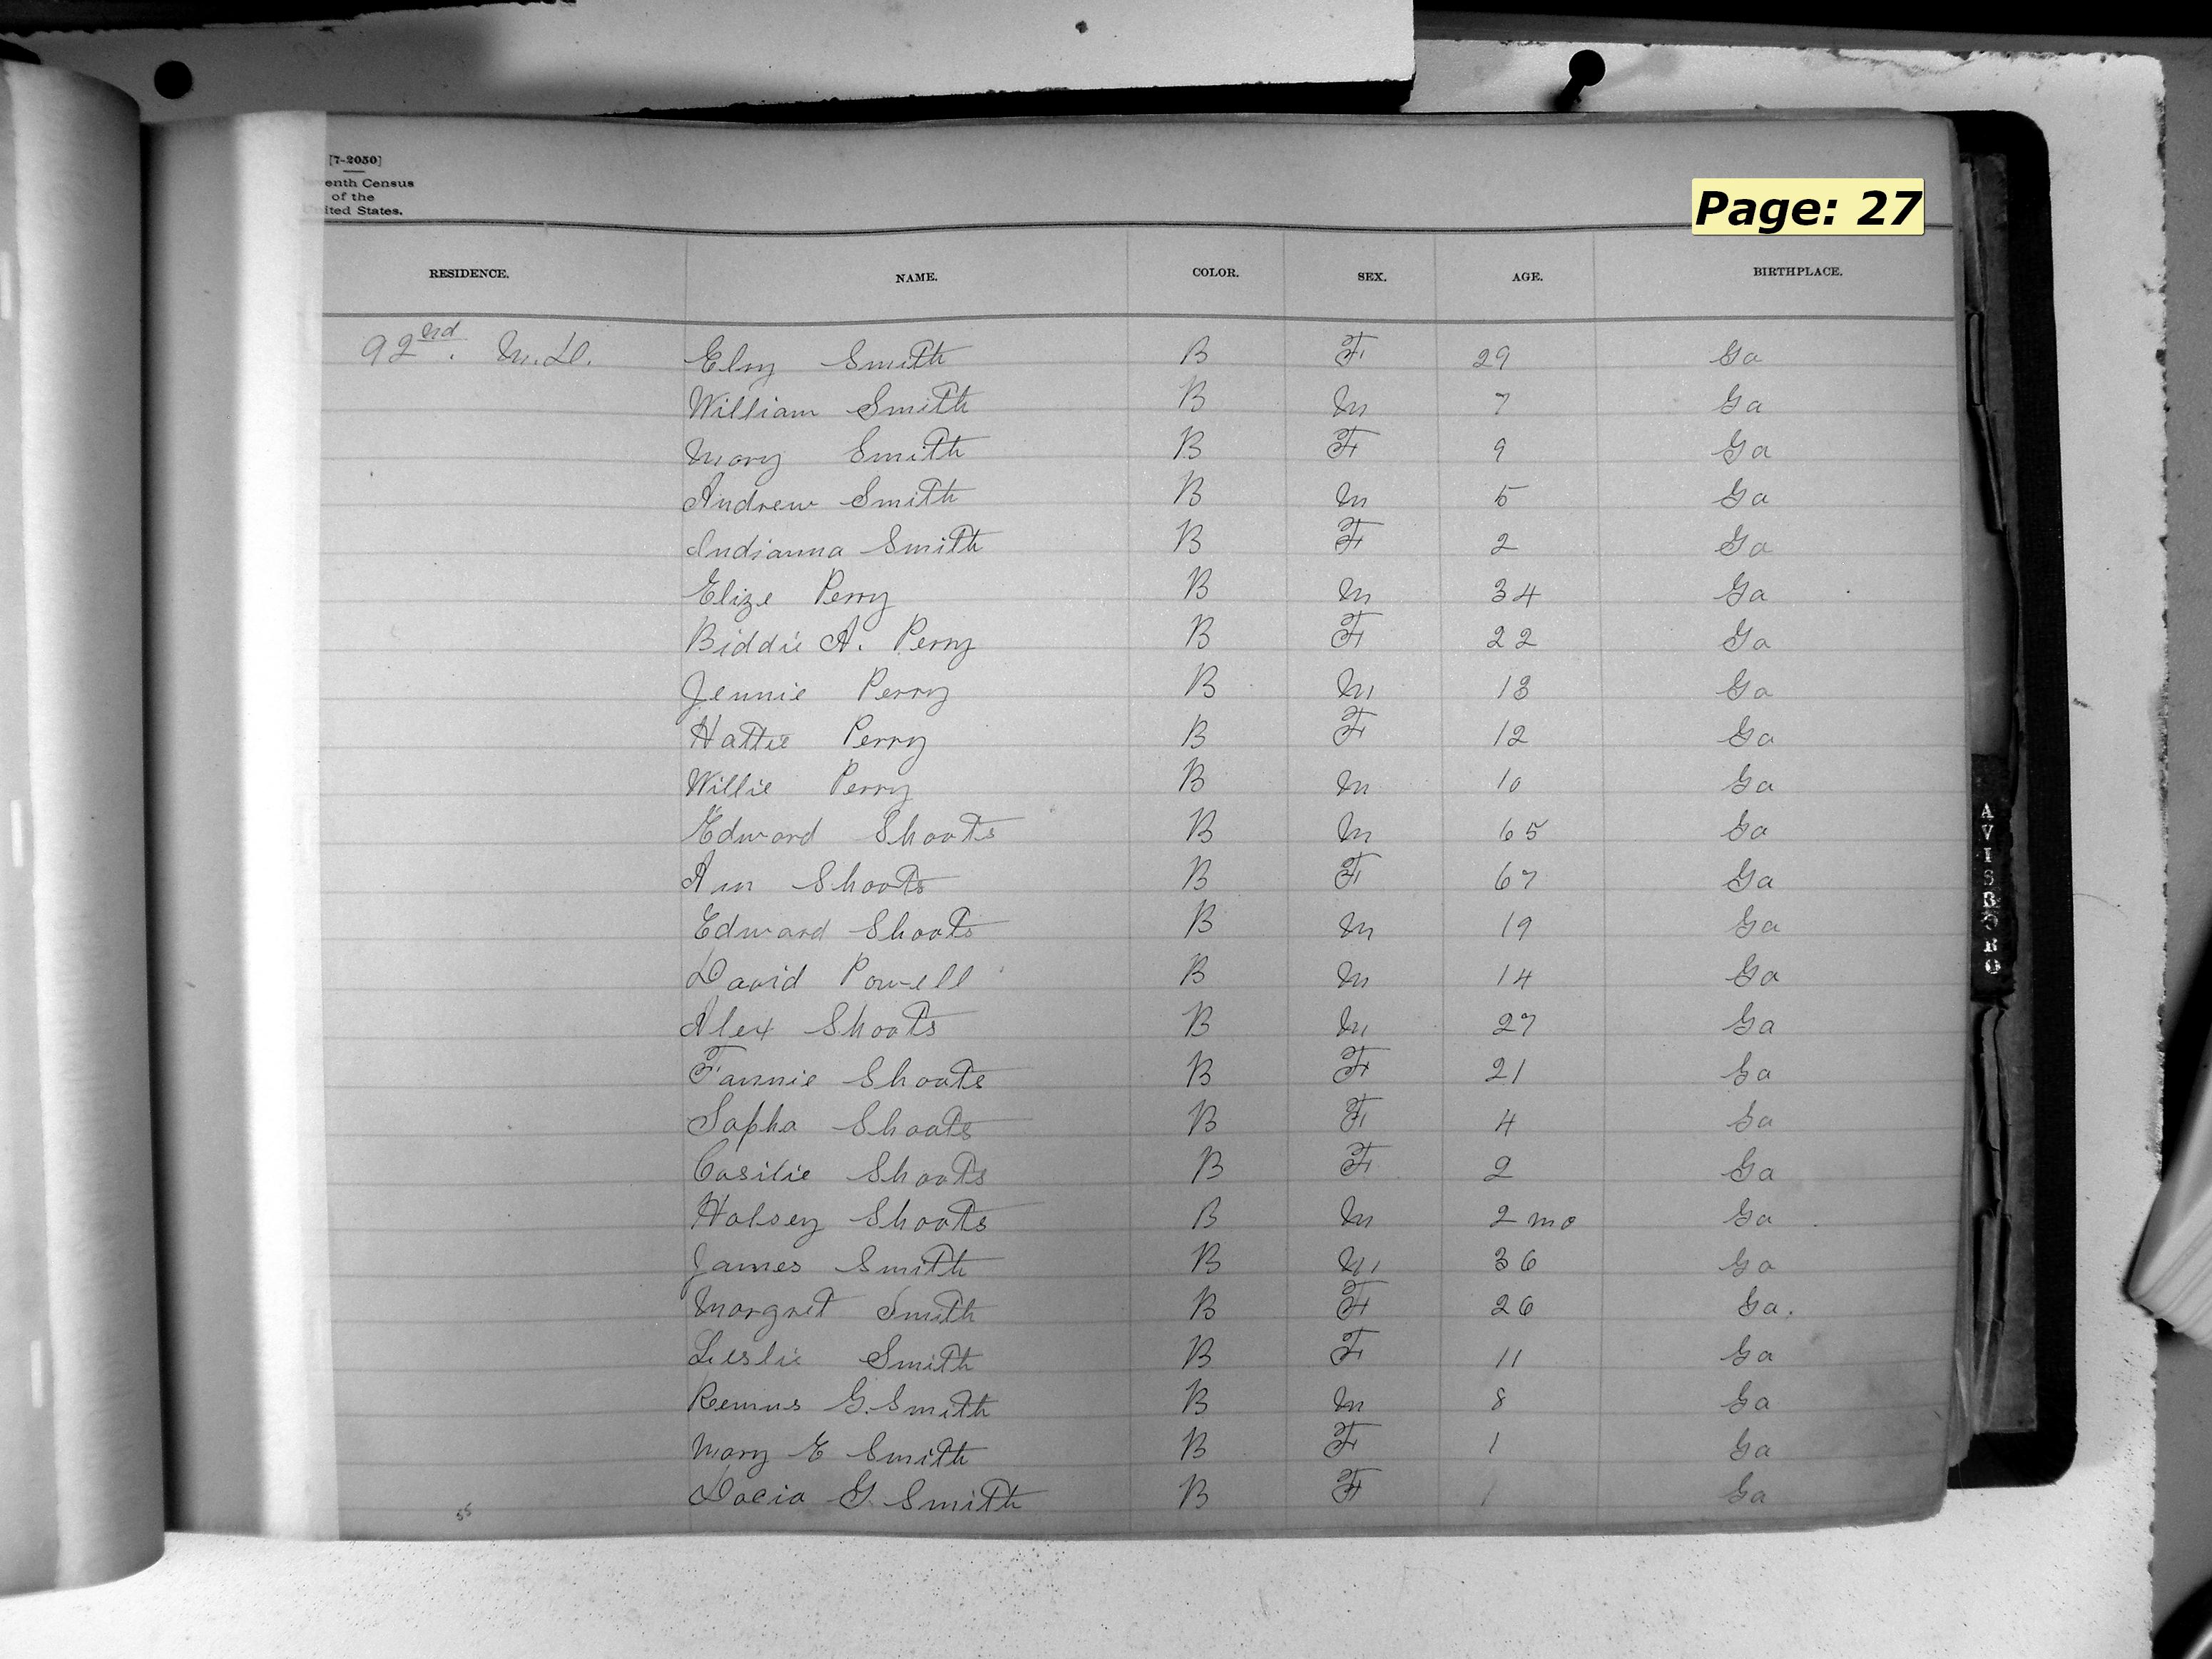 [7-2050]
enth Census
of the
ited States.
Page: 27
RESIDENCE. NAME. COLOR. SEX. AGE. BIRTHPLACE.
92nd. M.D. Elsy Smith B F 29 Ga
William Smith B M 7 Ga
Mary Smith B F 9 Ga
Andrew Smith B M 5 Ga
Indianna Smith B F 2 Ga
Elize Perry B M 34 Ga
Biddie A. Perry B F 22 Ga
Jennie Perry B M 13 Ga
Hattie Perry B F 12 Ga
Willie Perry B M 10 Ga
Edward Shoots B M 65 Ga
Ann Shoots B F 67 Ga
Edward Shoots B M 19 Ga
David Powell B M 14 Ga
Alex Shoots B M 27 Ga
Fannie Shoots B F 21 Ga
Sopha Shoots B F 4 Ga
Casilie Shoots B F 2 Ga
Halsey Shoots B M 2 mo Ga
James Smith B M 36 Ga
Margret Smith B F 26 Ga.
Leslie Smith B F 11 Ga
Remus G. Smith B M 8 Ga
Mary E Smith B F 1 Ga
Docia G. Smith B F 1 Ga
55
AVISBORO